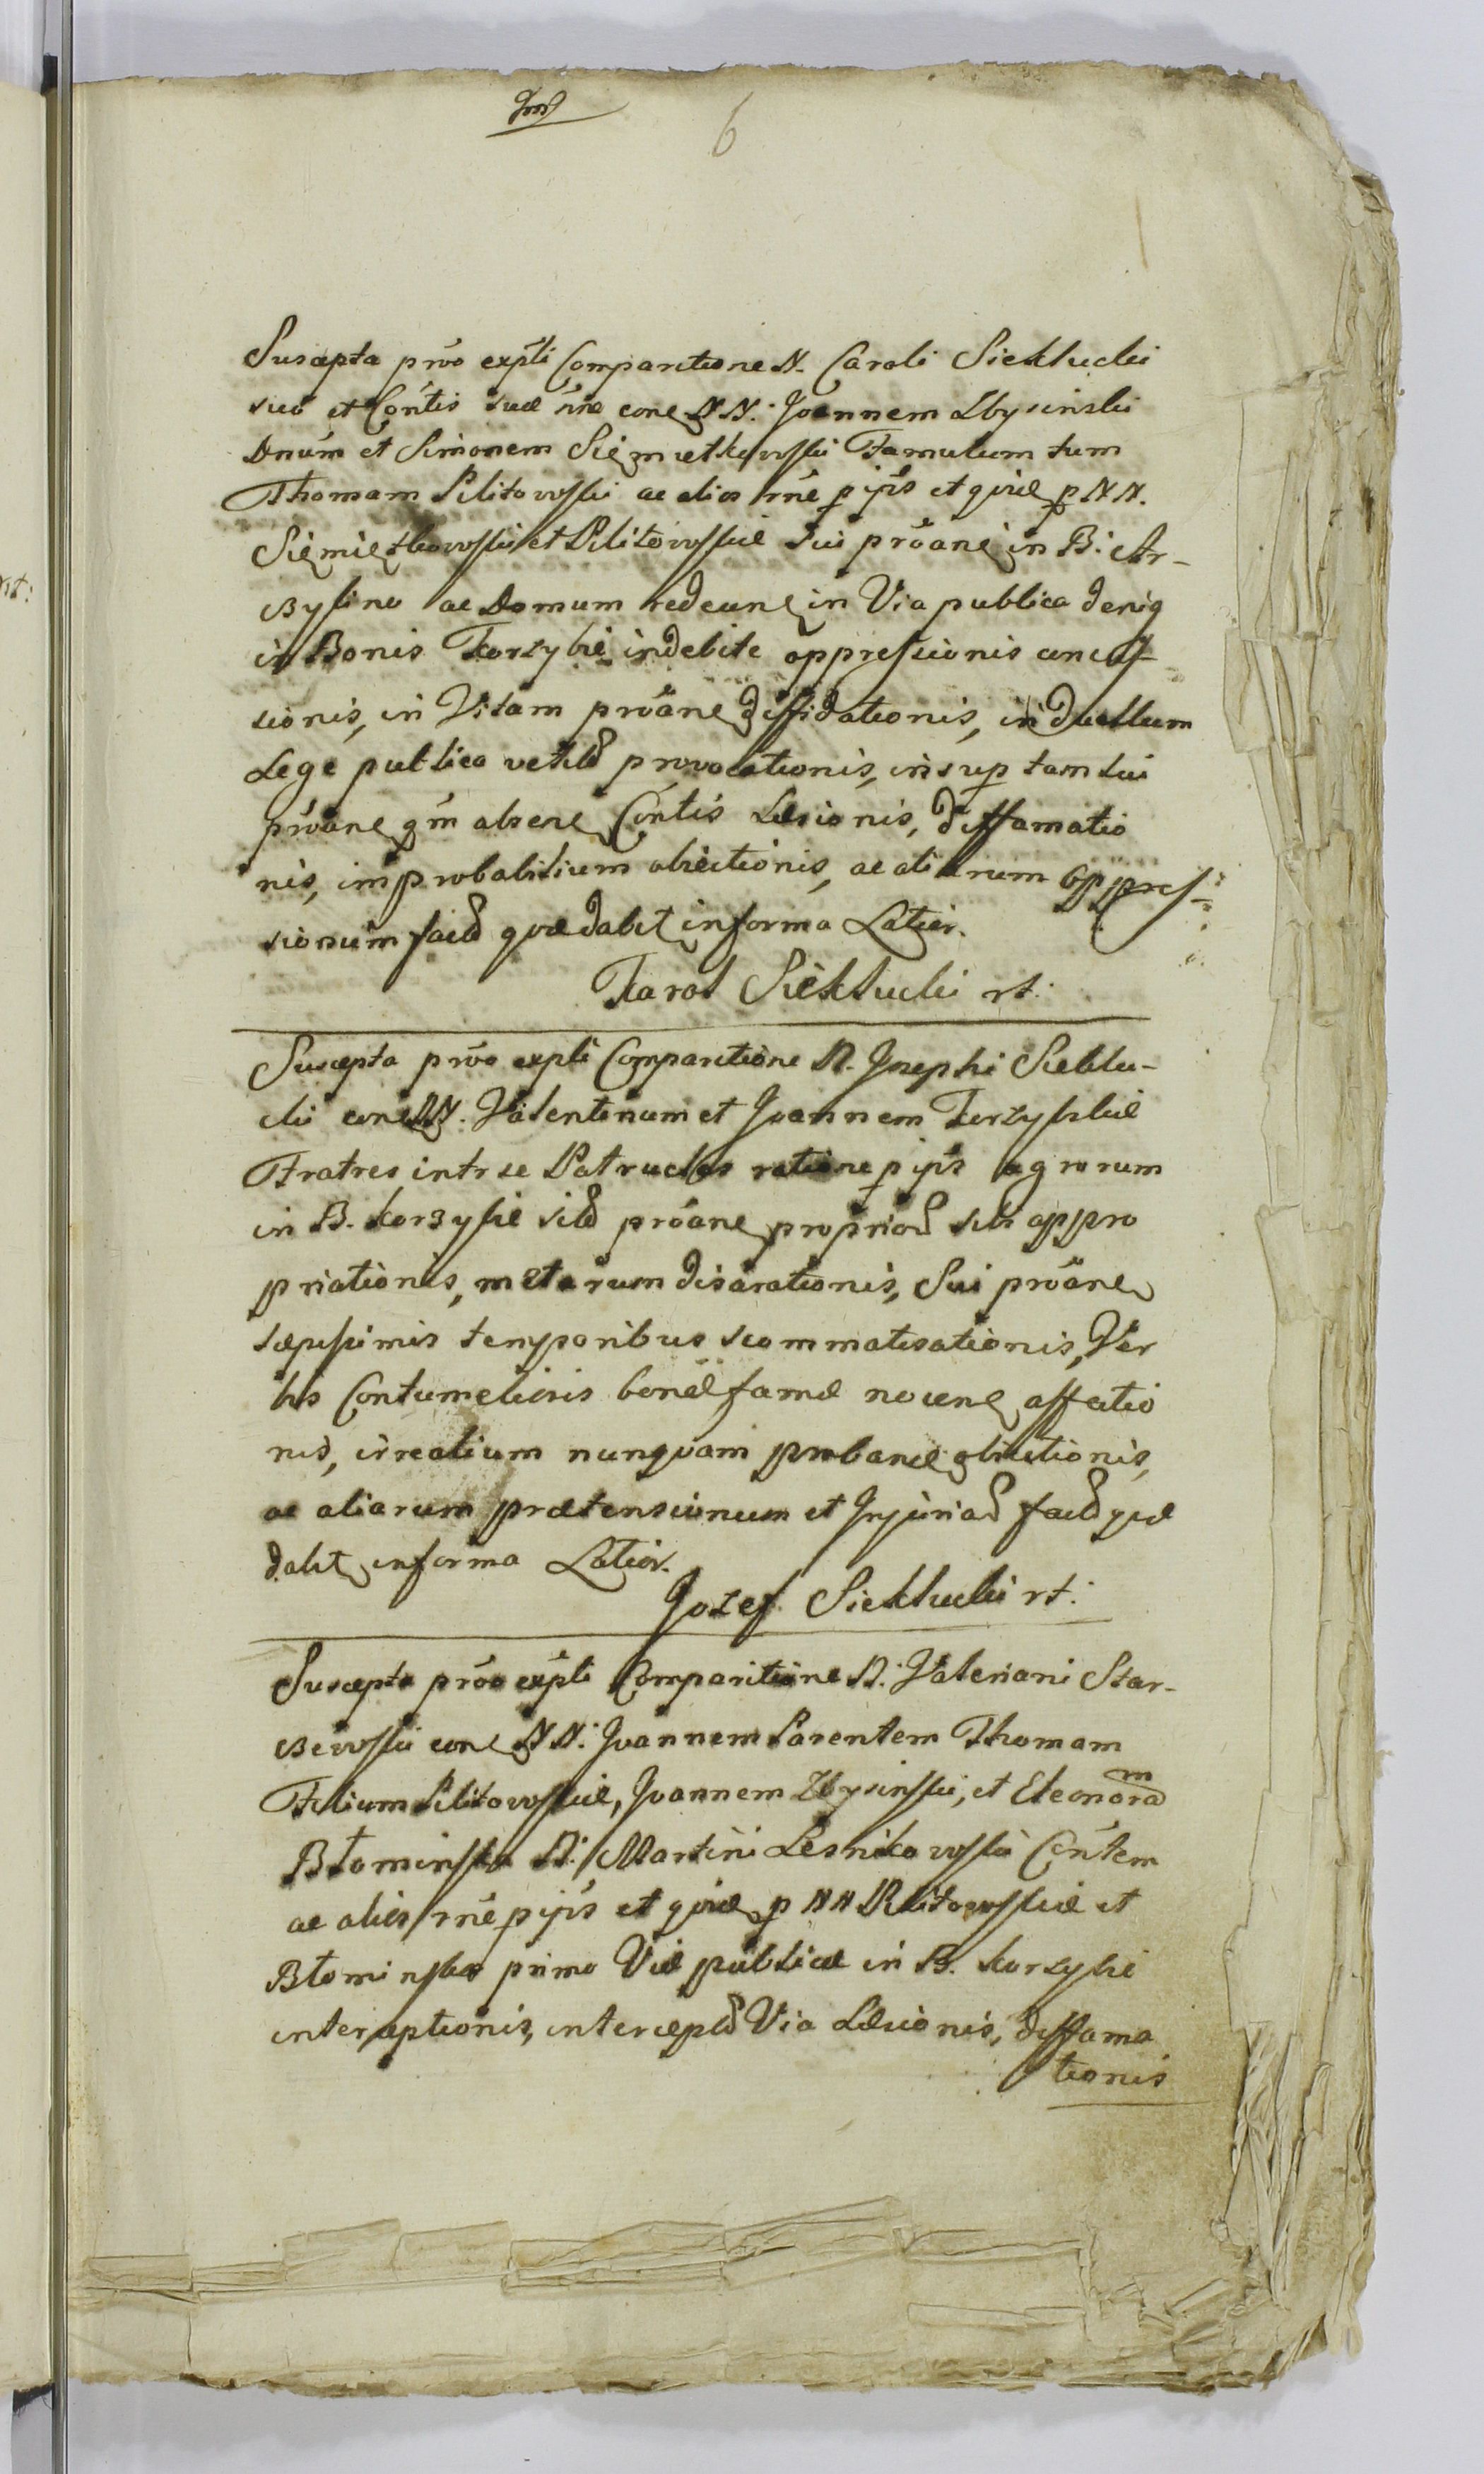 6
Suscepta prôo expłi Comparitione N. Caroli Siekłucki
suo et Cońtis suæ rńe cone NN. Joannem Zbysinski
Dnúm et Simonem Siemietkowski Famulum tum
Thomam Pilitowski ac alios rńe p ip̃s et qvidę p NN.
Siemiętkowski et Pilitowskie sui prôanę in B.
ac Domum redeunę in Via publica deniq
in Bonis Korzybie indebite oppressionis concus-
sionis, in Vitam prôanę diffidationis, in duellum
Lege publica vetitã provocationis, insup tam sui
prôanę qm̃ absenę Cońtis Læsionis, diffamatio
nis, improbabilium obiectionis, ac aliarum oppres-
sionum facið qvæ dabit in forma Latior.
Karol Siekłucki rt:
Suscepta prôo expłi Comparitione N. Josephi Siekłu-
cki cone NN. Valentinum et Joannem Korzybskie
Fratres intr se Patrueles ratione p ip̃s agrorum
in B. Korzybie sitð prôanę propriað sibi appro
priationis, metarum disarationis, Sui prôanę
sæpissimis temporibus scommatisationis, Ver
bis Contumeliosis bonæ famæ nocenę affectio
nis, irrealium nunqvam probanę obiectionis,
ac aliarum prætensionum et Injuriað facið qvæ
dabit in forma Latior.
Jozef Siekłucki rt:
Suscepta prôo expłi Comparitione N. Valeriani Star-
czewski cone NN. Joannem Parentem Thomam
Filium Pilitowskie, Joannem Zbysinski, et Eleonoram
Błominska N. Martini Lesnikowski Cońtem
ac alios rńe p ip̃s et qvidę p NN Pilitowskie et
Błominska primo Viæ publicæ in B. Korzybie
interceptionis, interceptð Via Læsionis, diffama
tionis